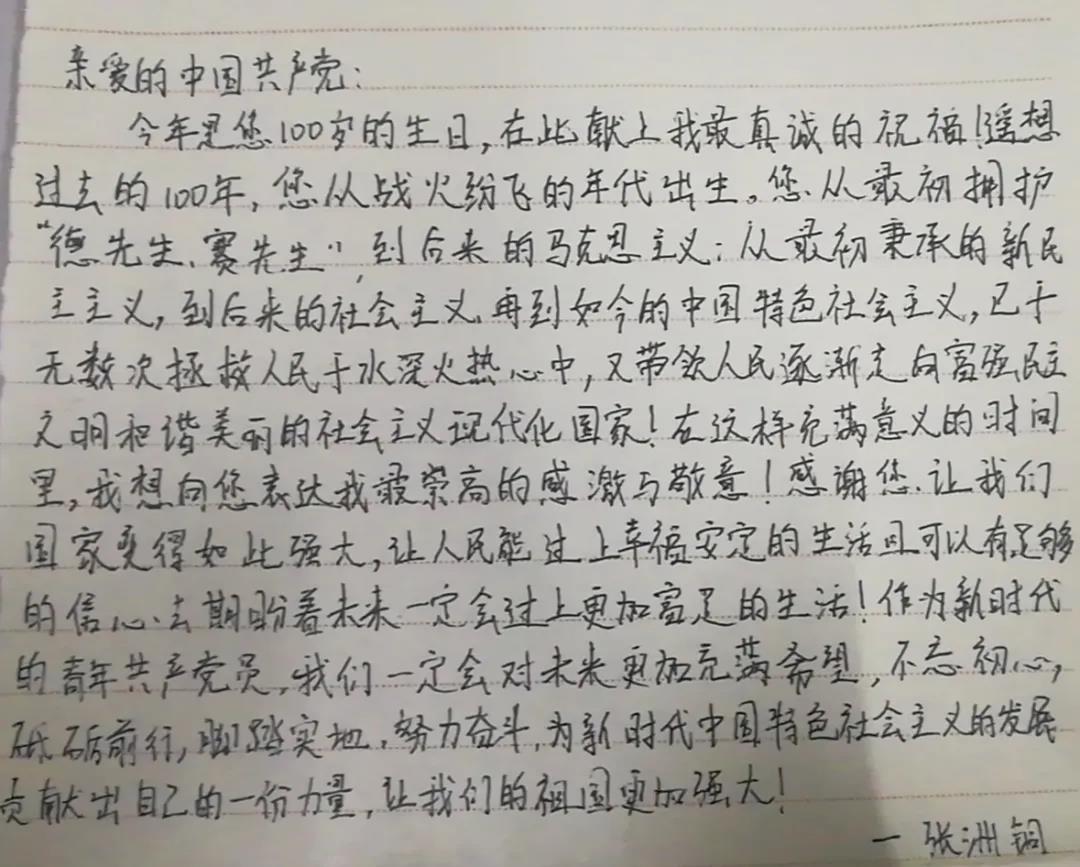 亲爱的中国共产党：
今年是您100岁的生日，在此献上我最真诚的祝福！遥想
过去的100年，您从战火纷飞的年代出生。您从最初拥护
“德先生、赛先生”，到后来的马克思主义；从最初秉承的新民
主主义，到后来的社会主义，再到如今的中国特色社会主义，已于
无数次拯救人民于水深火热心中，又带领人民逐渐走向富强民主
文明和谐美丽的社会主义现代化国家！在这样充满意义的时间
里，我想向您表达我最崇高的感激与敬意！感谢您让我们
国家变得如此强大，让人民能过上幸福安定的生活且可以有足够
的信心去期盼着未来一定会过上更加富足的生活！作为新时代
的青年共产党员，我们一定会对未来更加充满希望，不忘初心，
砥砺前行，脚踏实地，努力奋斗，为新时代中国特色社会主义的发展
贡献出自己的一份力量，让我们的祖国更加强大！
—张洲铜